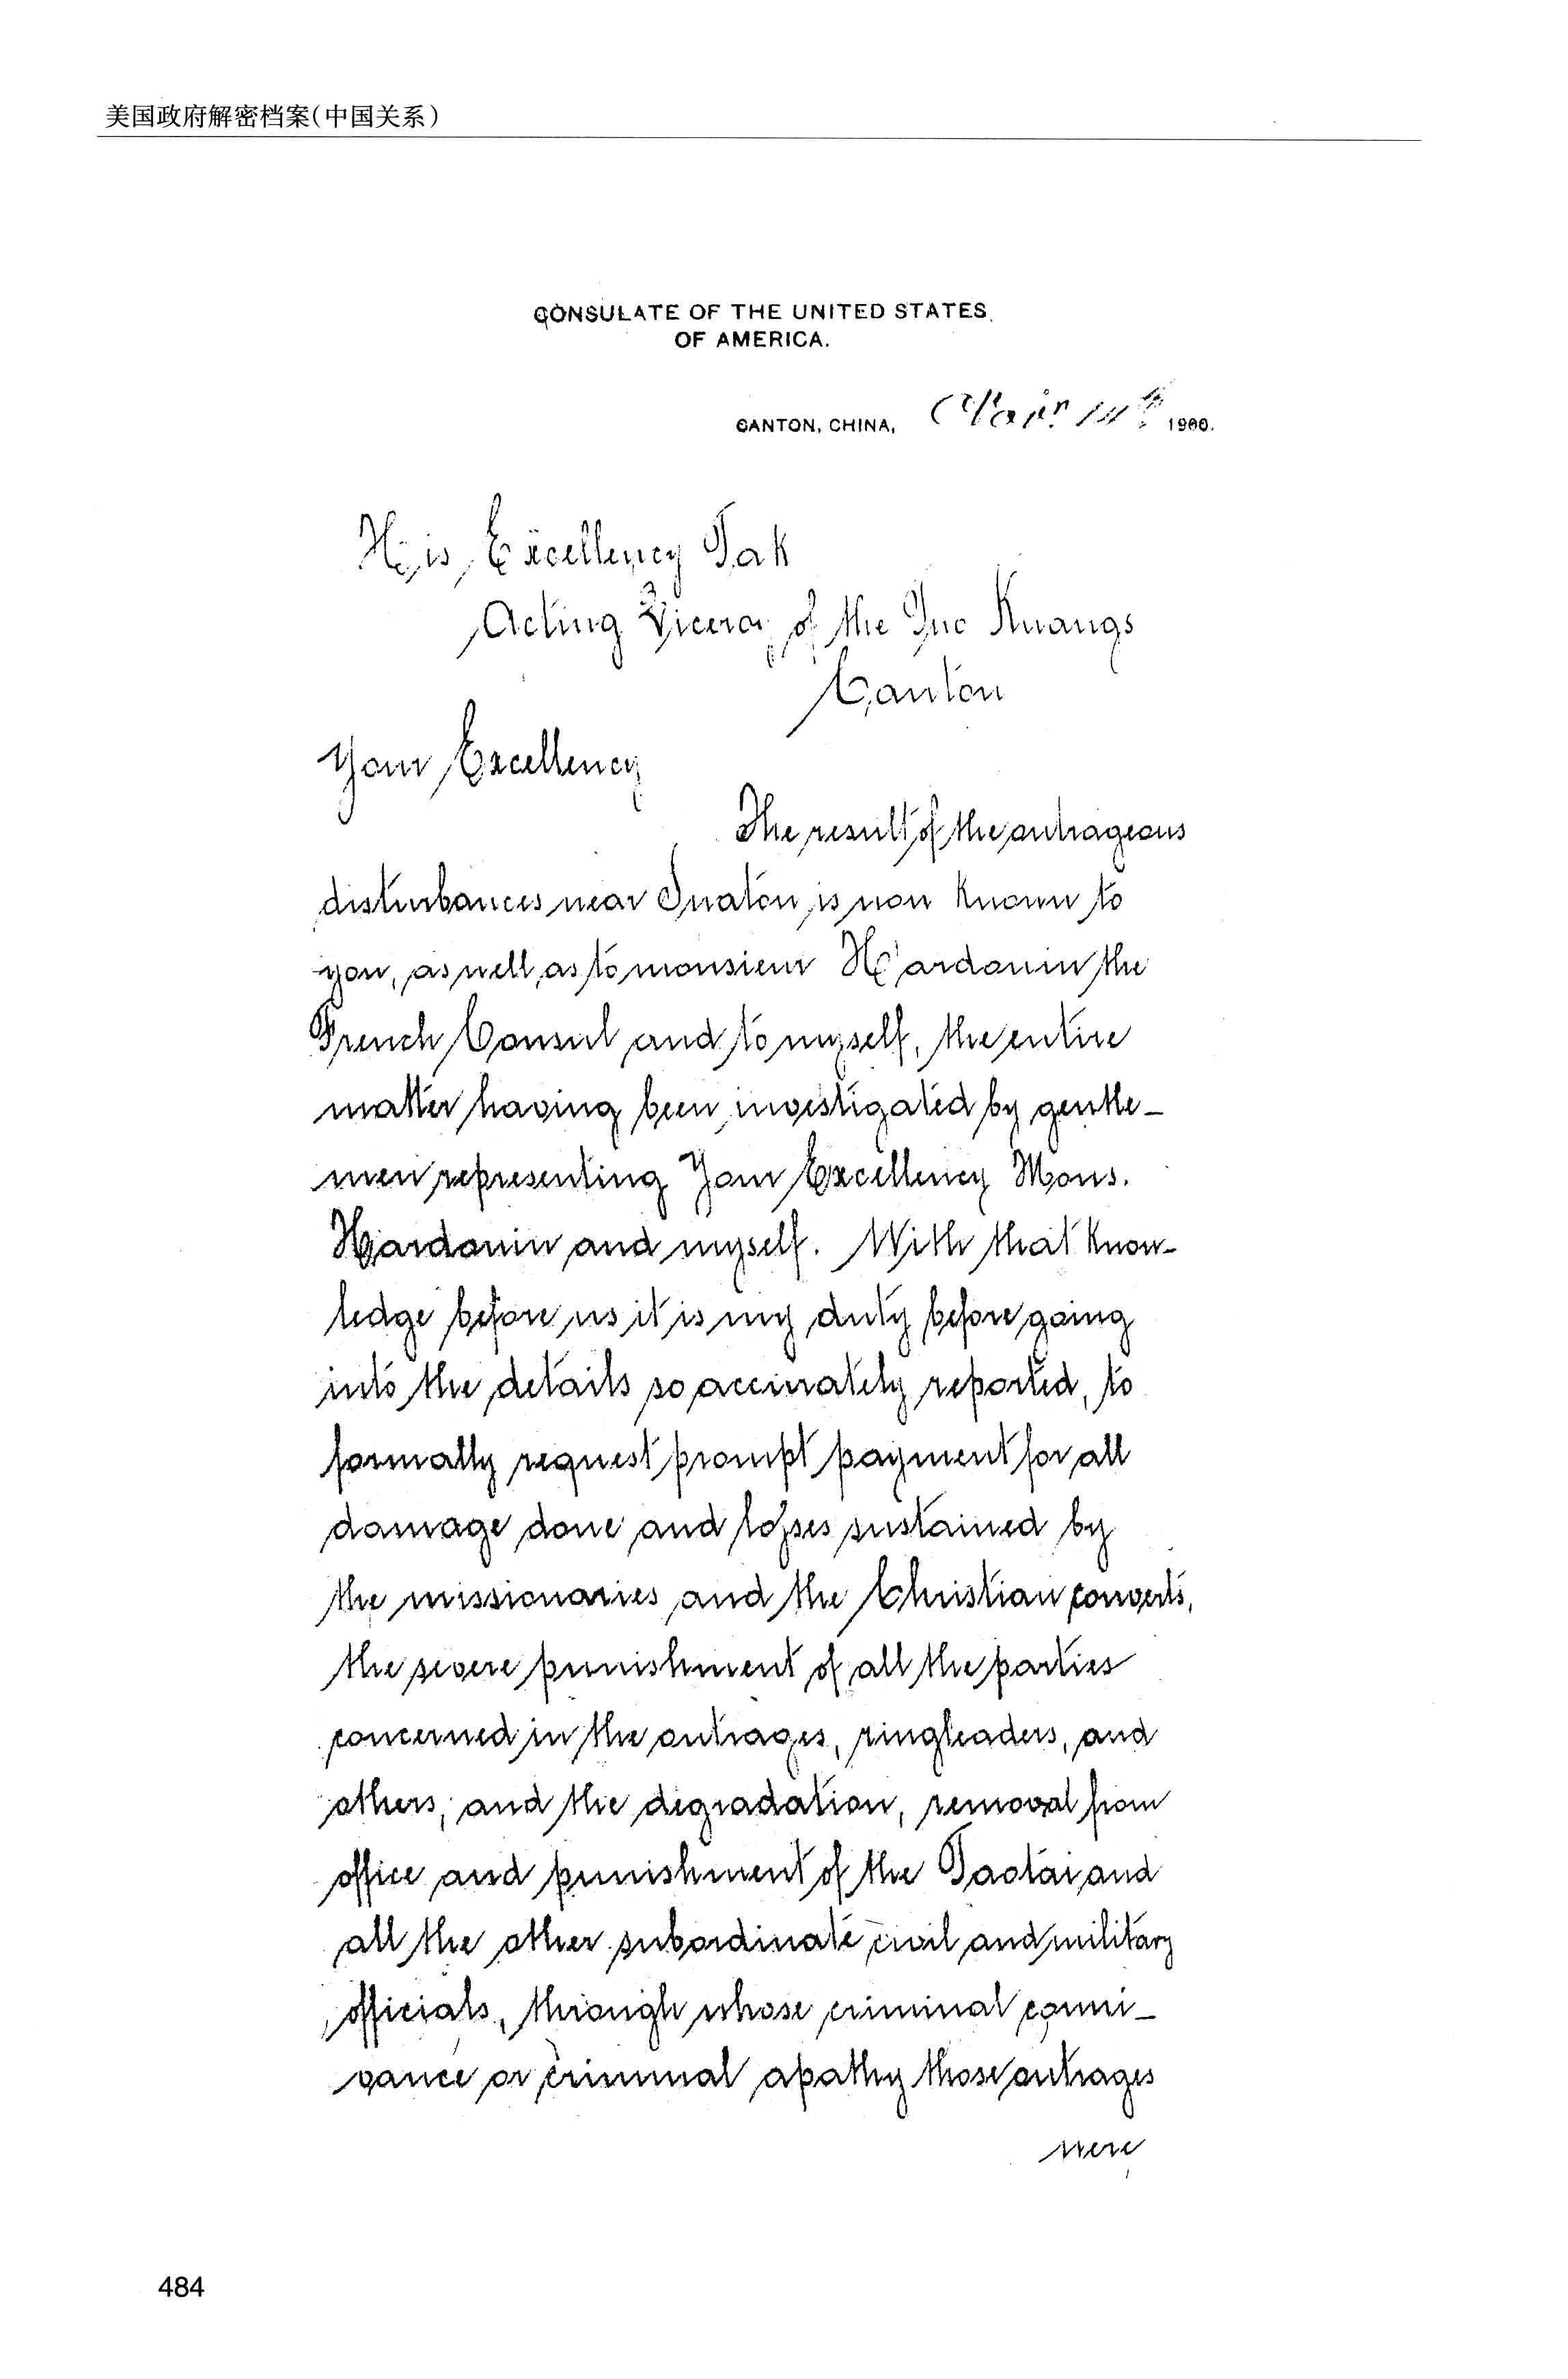 美国政府解密档案(中国关系)
CONSULATE OF THE UNITED STATES
OF AMERICA.
CANTON, CHINA, 14th 1900.
His Excellency Tak
Acting Viceroy of the Two Kuangs
Canton
Your Excellency
The result of the outrageous
disturbances near Swatow is now known to
you, as well as to monsieur Hardouin the
French Consul and to myself, the entire
matter having been investigated by gentle-
men representing Your Excellency Mons.
Hardouin and myself. With that know-
ledge before us it is my duty before going
into the details so accurately reported, to
formally request prompt payment for all
damage done and losses sustained by
the missionaries and the Christian converts,
the severe punishment of all the parties
concerned in the outrages, ringleaders, and
others; and the degradation, removal from
office and punishment of the Taotai and
all the other subordinate civil and military
officials, through whose criminal conni-
vance or criminal apathy those outrages
were
484